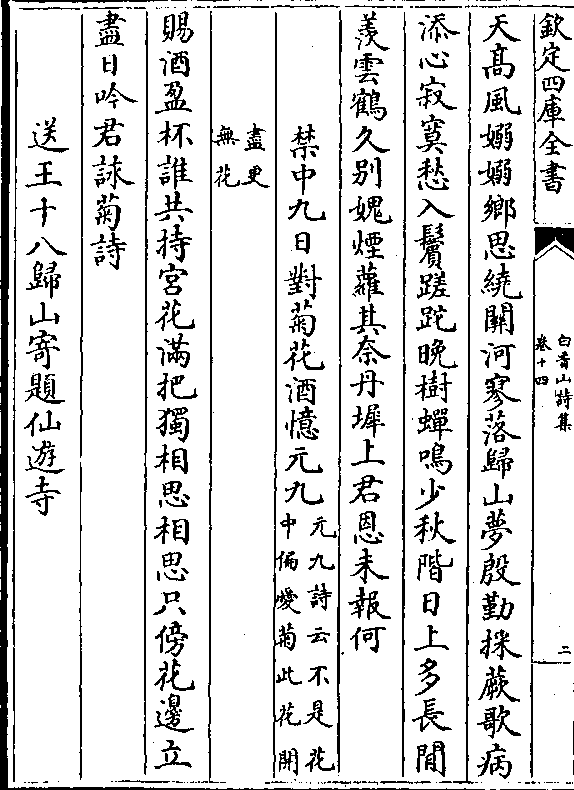 欽定四庫全書
白香山詩集
卷十四
二
天髙風嫋嫋鄉思繞關河寥落歸山夢殷勤採蕨歌病
添心寂寞愁入鬢蹉跎晚樹蟬鳴少秋階日上多長閒
羨雲鶴久别媿煙蘿其奈丹墀上君恩未報何
禁中九日對菊花酒憶元九
元九詩云不是花
中偏愛菊此花開
盡更
無花
賜酒盈杯誰共持宮花滿把獨相思相思只傍花邊立
盡日吟君詠菊詩
送王十八歸山寄題仙遊寺